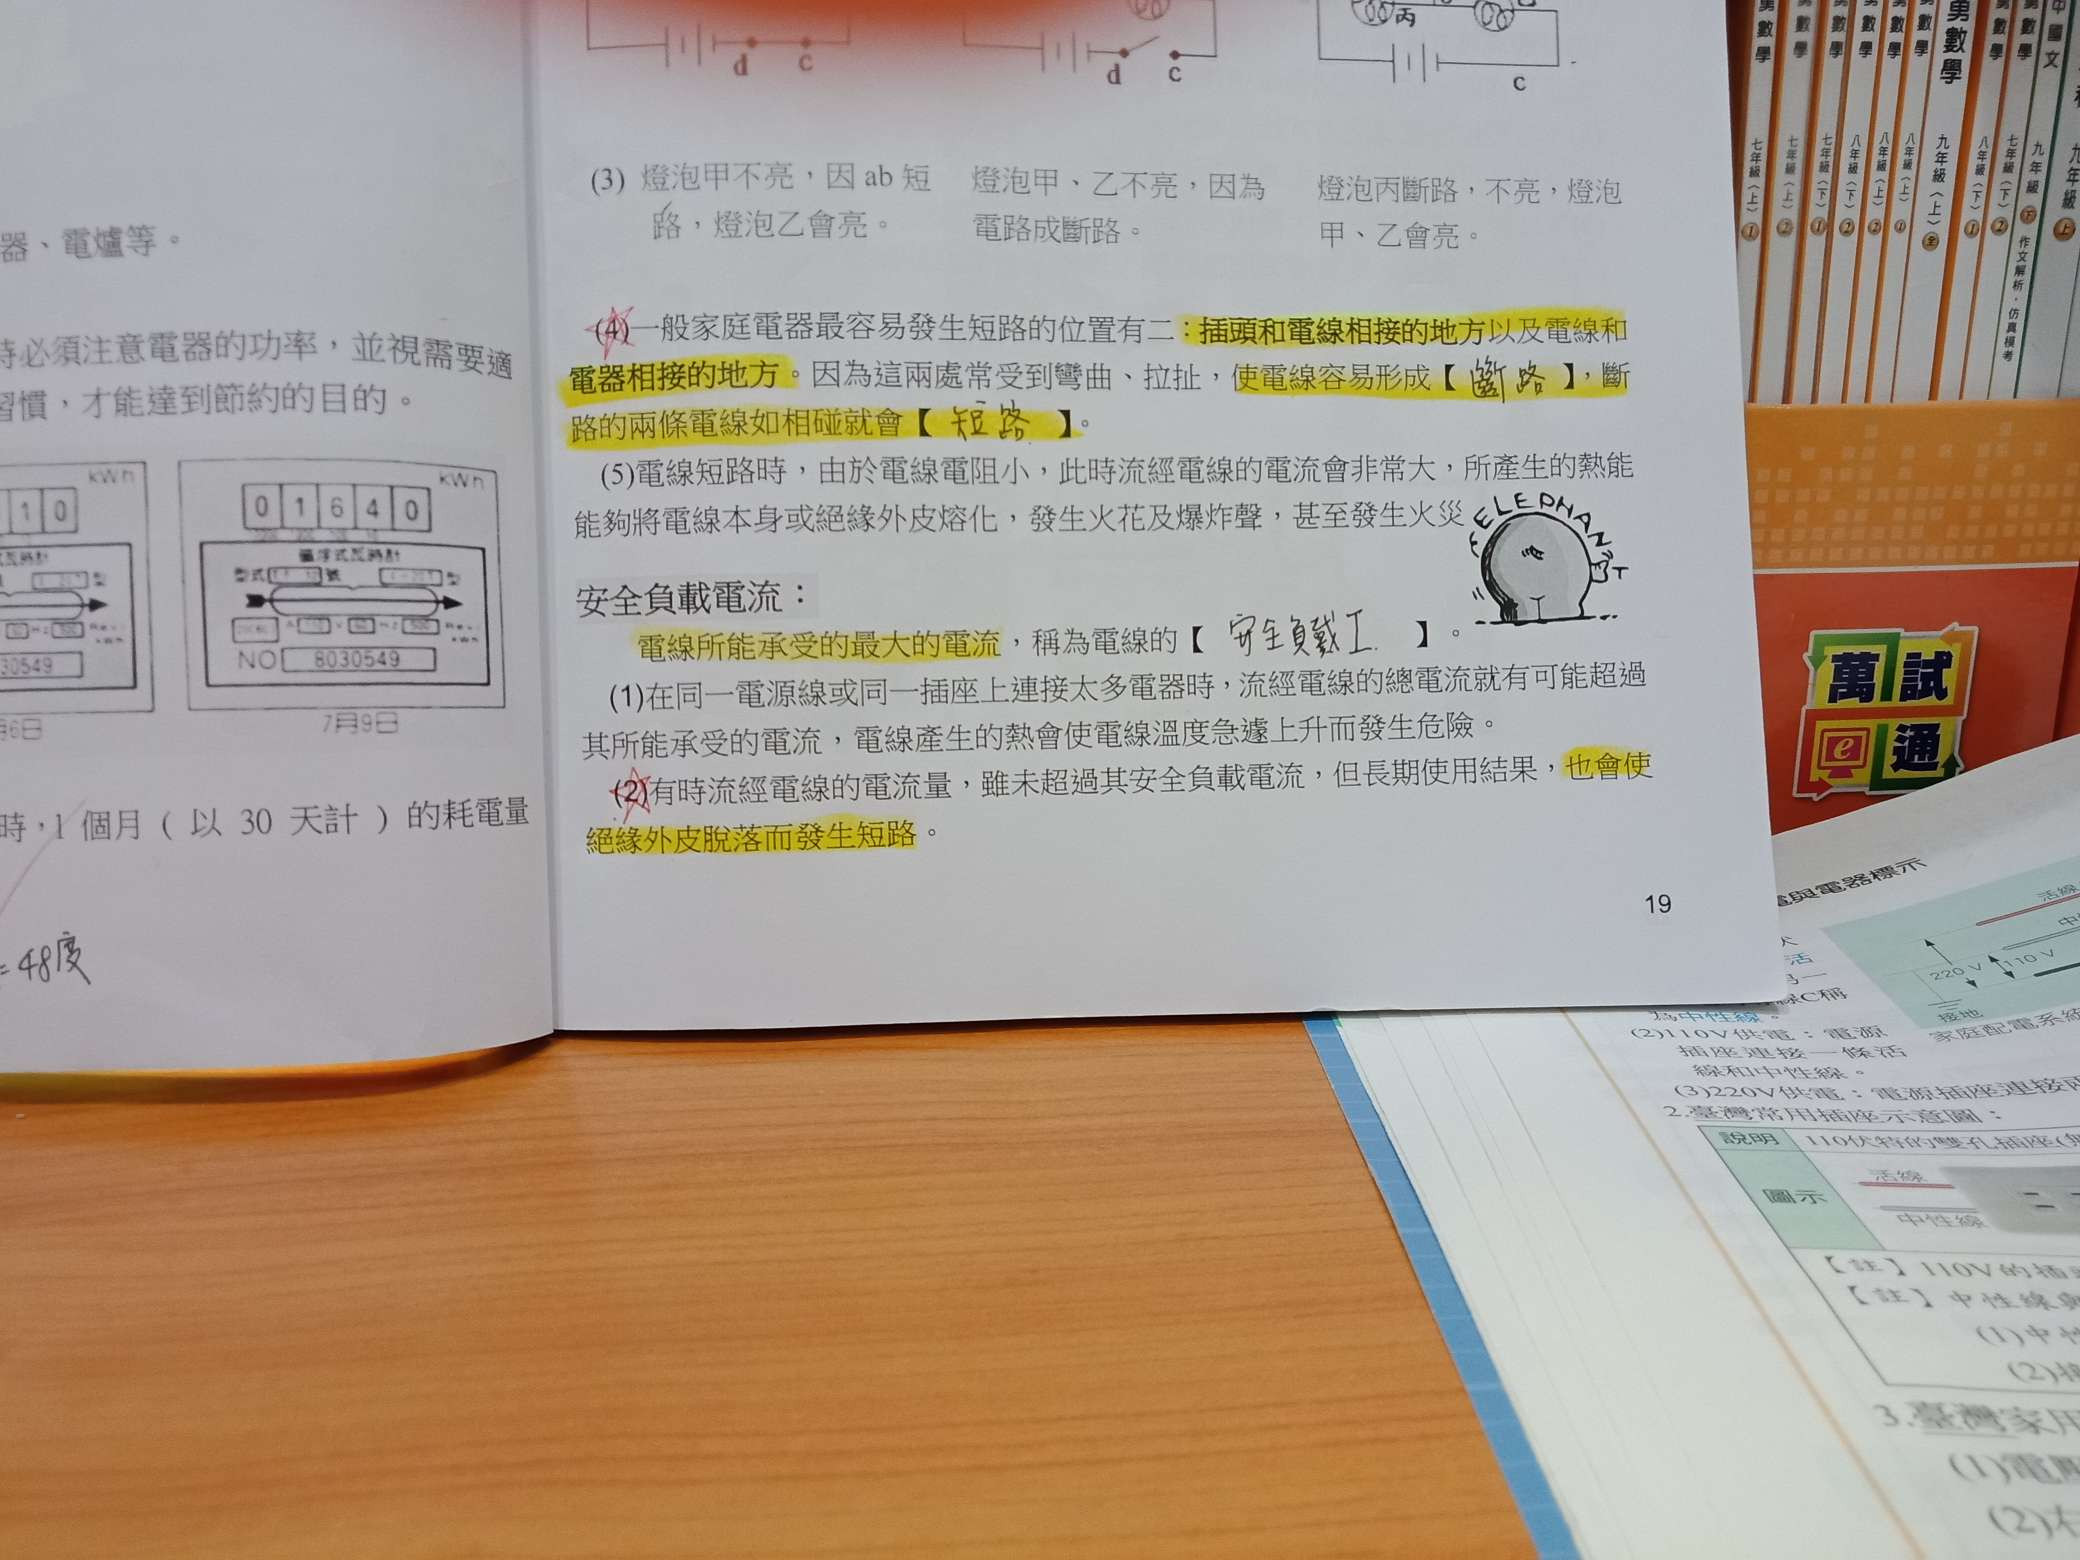 器、電爐等。
時必須注意電器的功率，並視需要適
習慣，才能達到節約的目的。
kWh
1 0
30549
kWh
0 1 6 4 0
型式
號
型
NO 8030549
6日
7月9日
時，1 個月 ( 以 30 天計 ) 的耗電量
= 48度
d c
d c
丙
c
(3) 燈泡甲不亮，因 ab 短
路，燈泡乙會亮。
燈泡甲、乙不亮，因為
電路成斷路。
燈泡丙斷路，不亮，燈泡
甲、乙會亮。
(4)一般家庭電器最容易發生短路的位置有二：插頭和電線相接的地方以及電線和
電器相接的地方。因為這兩處常受到彎曲、拉扯，使電線容易形成【 斷路 】，斷
路的兩條電線如相碰就會【 短路 】。
(5)電線短路時，由於電線電阻小，此時流經電線的電流會非常大，所產生的熱能
能夠將電線本身或絕緣外皮熔化，發生火花及爆炸聲，甚至發生火災
ELEPHANT
安全負載電流：
電線所能承受的最大的電流，稱為電線的【 安全負載I 】。
(1)在同一電源線或同一插座上連接太多電器時，流經電線的總電流就有可能超過
其所能承受的電流，電線產生的熱會使電線溫度急遽上升而發生危險。
(2)有時流經電線的電流量，雖未超過其安全負載電流，但長期使用結果，也會使
絕緣外皮脫落而發生短路。
19
勇數學 七年級〈上〉 1
數學 七年級〈上〉 2
數學 七年級〈下〉 1
數學 八年級〈下〉 2
數學 八年級〈上〉 2
數學 八年級〈上〉 1
勇數學 九年級〈上〉 全
數學 八年級〈下〉 1
數學 七年級〈下〉 2
數學 九年級 下 作文解析．仿真模考
中國文 九年級 上
萬試
e通
與電器標示
活線
220 V
110 V
接地
家庭配電系統
活
線C稱
為中性線。
(2)110V供電：電源
插座連接一條活
線和中性線。
(3)220V供電：電源插座連接兩
2.臺灣常用插座示意圖：
說明
110伏特的雙孔插座(
圖示
活線
中性線
【註】110V的插
【註】中性線與
(1)中性
(2)
3.臺灣家用
(1)電壓
(2)右